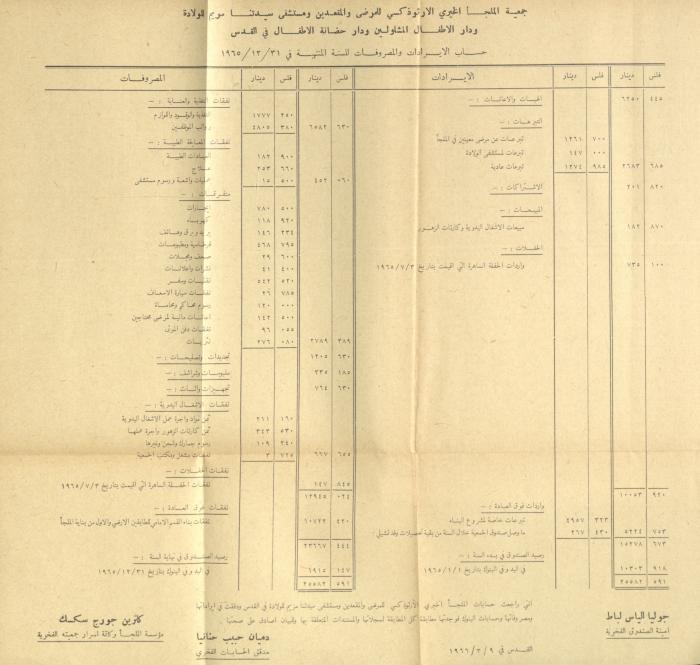 جمعية الملجأ الخيري الارثوذكسي للمرضى والمقعدين ومستشفى سيدتنا مريم للولادة
ودار الاطفال المشلولين ودار حضانة الاطفال في القدس
حساب الايرادات والمصروفات للسنة المنتهية في ١٩٦٥/١٢/٣١
فلس دينار فلس دينار الايرادات
٤٤٥ ٦٢٥٠ الهبات والاعانات : —
التبرعات : —
٧٠٠ ١٢٦١ تبرعات عن مرضى معينين في الملجأ
٠٠٠ ١٤٧ تبرعات لمستشفى الولادة
٦٨٥ ٢٦٨٣ ٩٨٥ ١٢٧٤ تبرعات عادية
٨٢٠ ٢٠١ الاشتراكات : —
المبيعات : —
٨٧٠ ١٨٢ مبيعات الاشغال اليدوية وكارتات الزهور
الحفلات : —
١٠٠ ٧٣٥ واردات الحفلة الساهرة التي اقيمت بتاريخ ١٩٦٥/٧/٣
٩٢٠ ١٠٠٥٣
واردات فوق العادة : —
٣٢٣ ٤٩٥٧ تبرعات خاصة لمشروع البناء
٧٥٣ ٥٢٢٤ ٤٣٠ ٢٦٧ ما وصل صندوق الجمعية خلال السنة من بقية تحصيلات وفد تشيلي :
٦٧٣ ١٥٢٧٨
رصيد الصندوق في بدء السنة : —
٩١٨ ١٠٣٠٣ في اليد وفي البنوك بتاريخ ١٩٦٥/١/١
٥٩١ ٢٥٥٨٢
فلس دينار فلس دينار المصروفات
نفقات التغذية والعناية : —
٢٥٠ ١٧٧٧ التغذية والوقود واللوازم
٦٣٠ ٦٥٨٢ ٣٨٠ ٤٨٠٥ رواتب الموظفين
نفقات المعالجة الطبية : —
٩٠٠ ١٨٢ العيادات الطبية
٦٦٠ ٢٥٣ علاج
٠٦٠ ٤٥٢ ٥٠٠ ١٥ عمليات واشعة ورسوم مستشفى
متفرقات : —
٥٠٠ ٧٨٠ ايجارات
٩٢٠ ١١٨ كهرباء
٢٣٤ ١٤٦ بريد وبرق وهاتف
٧٩٥ ٤٦٨ قرطاسية ومطبوعات
٦٠٠ ٢٩ صحف ومجلات
٤٠٠ ٤١ نشرات واعلانات
٥٢٠ ٥٤٢ تنقلات وسفر
٧٨٥ ٢٦ نفقات سيارة الاسعاف
٠٠٠ ١٢٠ رسوم محاكم ومحاماة
٥٠٠ ١٤٢ اعانات مالية لمرضى محتاجين
٠٥٥ ٩٦ نفقات دفن الموتى
٣٨٩ ٢٧٨٩ ٠٨٠ ٢٧٦ نثريات
٦٣٠ ١٢٠٥ تجديدات وتصليحات : —
١٨٥ ٣٣٥ ملبوسات وشراشف : —
٦٣٠ ٧٦٤ تجهيزات واثاث : —
نفقات الاشغال اليدوية : —
١٦٠ ٢١١ ثمن مواد واجرة عمل الاشغال اليدوية
٥٣٠ ٣٤٣ ثمن كارتات الزهور واجرة عملها
٢٤٠ ١٠٩ رسوم جمارك وشحن وغيرها
٦٥٥ ٦٦٧ ٧٢٥ ٣ نفقات مشغل ومكتب الجمعية
نفقات الحفلات : —
٨٤٥ ١٤٧ نفقات الحفلة الساهرة التي اقيمت بتاريخ ١٩٦٥/٧/٣
٠٢٤ ١٢٩٤٥
نفقات فوق العادة : —
٤٢٠ ١٠٧٢٢ نفقات بناء القسم الامامي للطابقين الارضي والاول من بناية الملجأ
٤٤٤ ٢٣٦٦٧
رصيد الصندوق في نهاية السنة : —
١٤٧ ٦٩١٥ في اليد وفي البنوك بتاريخ ١٩٦٥/١٢/٣١
٥٩١ ٢٥٥٨٢
جوليا الياس لباط
امينة الصندوق الفخرية
انني راجعت حسابات الملجأ الخيري الارثوذكسي للمرضى والمقعدين ومستشفى سيدتنا مريم للولادة في القدس ودققت في ايراداتها
ومصروفاتها وحسابات البنوك فوجدتها مطابقة كل المطابقة لسجلاتها والمستندات المتعلقة بها وللبيان اصادق على صحتها .
القدس في ١٩٦٦/٣/٩
دميان حبيب حنانيا
مدقق الحسابات الفخري
كاترين جورج سكسك
مؤسسة الملجأ وكاتمة اسرار جمعيته الفخرية